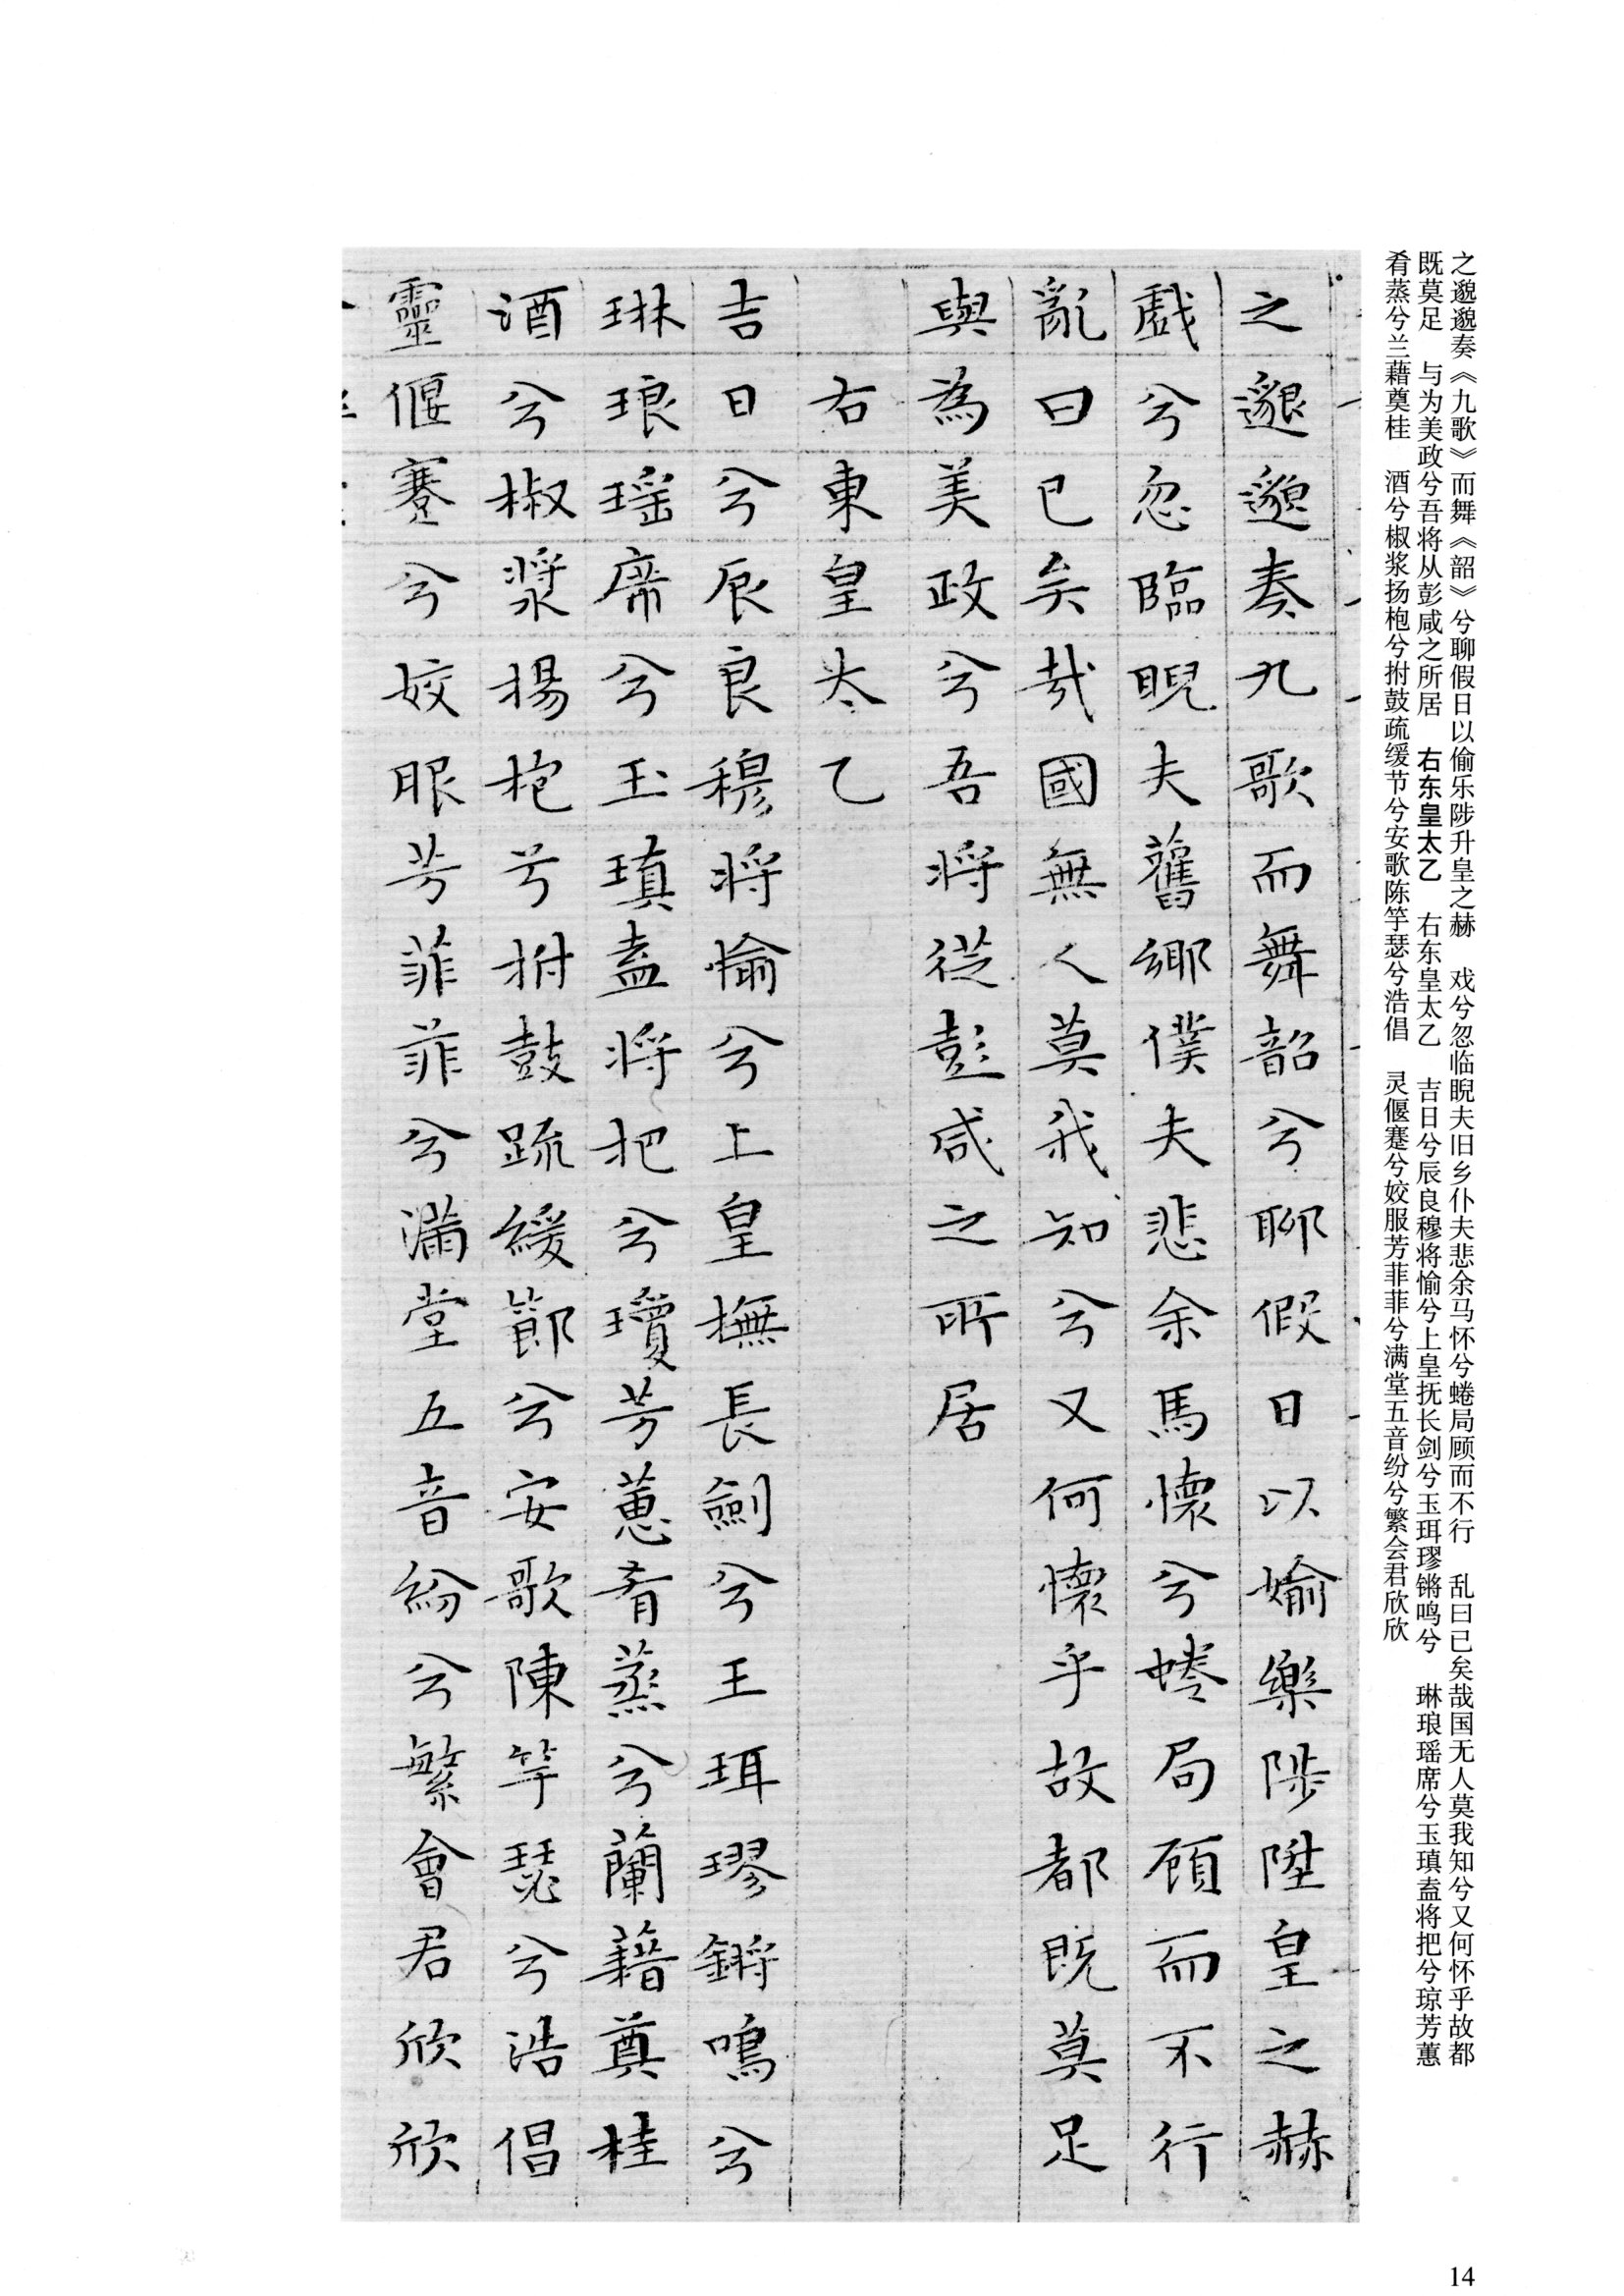 之邈邈奏《九歌》而舞《韶》兮聊假日以偷乐陟升皇之赫　戏兮忽临睨夫旧乡仆夫悲余马怀兮蜷局顾而不行　乱曰已矣哉国无人莫我知兮又何怀乎故都
既莫足　与为美政兮吾将从彭咸之所居　右东皇太乙　右东皇太乙　吉日兮辰良穆将愉兮上皇抚长剑兮玉珥璆锵鸣兮　琳琅瑶席兮玉瑱盍将把兮琼芳蕙
肴蒸兮兰藉奠桂　酒兮椒浆扬枹兮拊鼓疏缓节兮安歌陈竽瑟兮浩倡　灵偃蹇兮姣服芳菲菲兮满堂五音纷兮繁会君欣欣
之邈邈奏九歌而舞韶兮聊假日以媮樂陟陞皇之赫
戲兮忽臨睨夫舊鄉僕夫悲余馬懷兮蜷局顧而不行
亂曰已矣哉國無人莫我知兮又何懷乎故都既莫足
與為美政兮吾將從彭咸之所居
右東皇太乙
吉日兮辰良穆將愉兮上皇撫長劍兮玉珥璆鏘鳴兮
琳琅瑤席兮玉瑱盍將把兮瓊芳蕙肴蒸兮蘭藉奠桂
酒兮椒漿揚枹兮拊鼓疏緩節兮安歌陳竽瑟兮浩倡
靈偃蹇兮姣服芳菲菲兮滿堂五音紛兮繁會君欣欣
14